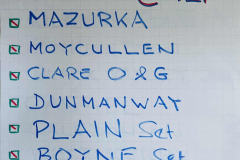 MAZURKA
MOYCULLEN
CLARE O & G
DUNMANWAY
PLAIN Set
BOYNE Set